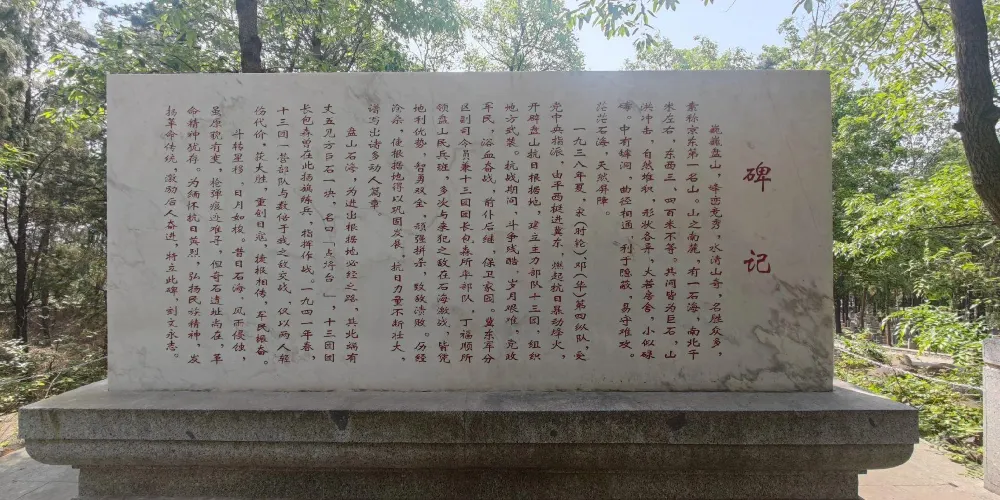 碑记
巍巍盘山，峰峦竞秀，水清山奇，名胜众多，
素称京东第一名山。山之南麓，有一石海，南北千
米左右，东西三、四百米不等。其间皆为巨石，山
洪冲击，自然堆积，形状各异，大若房舍，小似碌
碡。中有罅洞，曲径相通，利于隐蔽，易守难攻。
茫茫石海，天然屏障。
一九三八年夏，宋（时轮）邓（华）第四纵队，受
党中央指派，由平西挺进冀东，燃起抗日暴动烽火，
开辟盘山抗日根据地，建立主力部队十三团，组织
地方武装。抗战期间，斗争残酷，岁月艰难，党政
军民，浴血奋战，前仆后继，保卫家园。冀东军分
区副司令员兼十三团团长包森所率部队，丁福顺所
领盘山民兵班，多次与来犯之敌在石海激战，皆凭
地利优势，智勇双全，顽强拼杀，致敌溃败。历经
沧桑，使根据地得以巩固发展，抗日力量不断壮大，
谱写出诸多动人篇章
盘山石海，为进出根据地必经之路，其北端有
丈五见方巨石一块，名曰「点将台」，十三团团
长包森曾在此扬旗练兵，指挥作战。一九四一年春，
十三团一营部队与数倍于我之敌交战，仅以两人轻
伤代价，获大胜，重创日寇，捷报相传，军民振奋。
斗转星移，日月如梭。昔日石海，风雨侵蚀，
虽原貌有变，枪弹痕迹难寻，但奇石遗址尚在，革
命精神犹存。为缅怀抗日英烈，弘扬民族精神，发
扬革命传统，激励后人奋进，特立此碑，刻文永志。